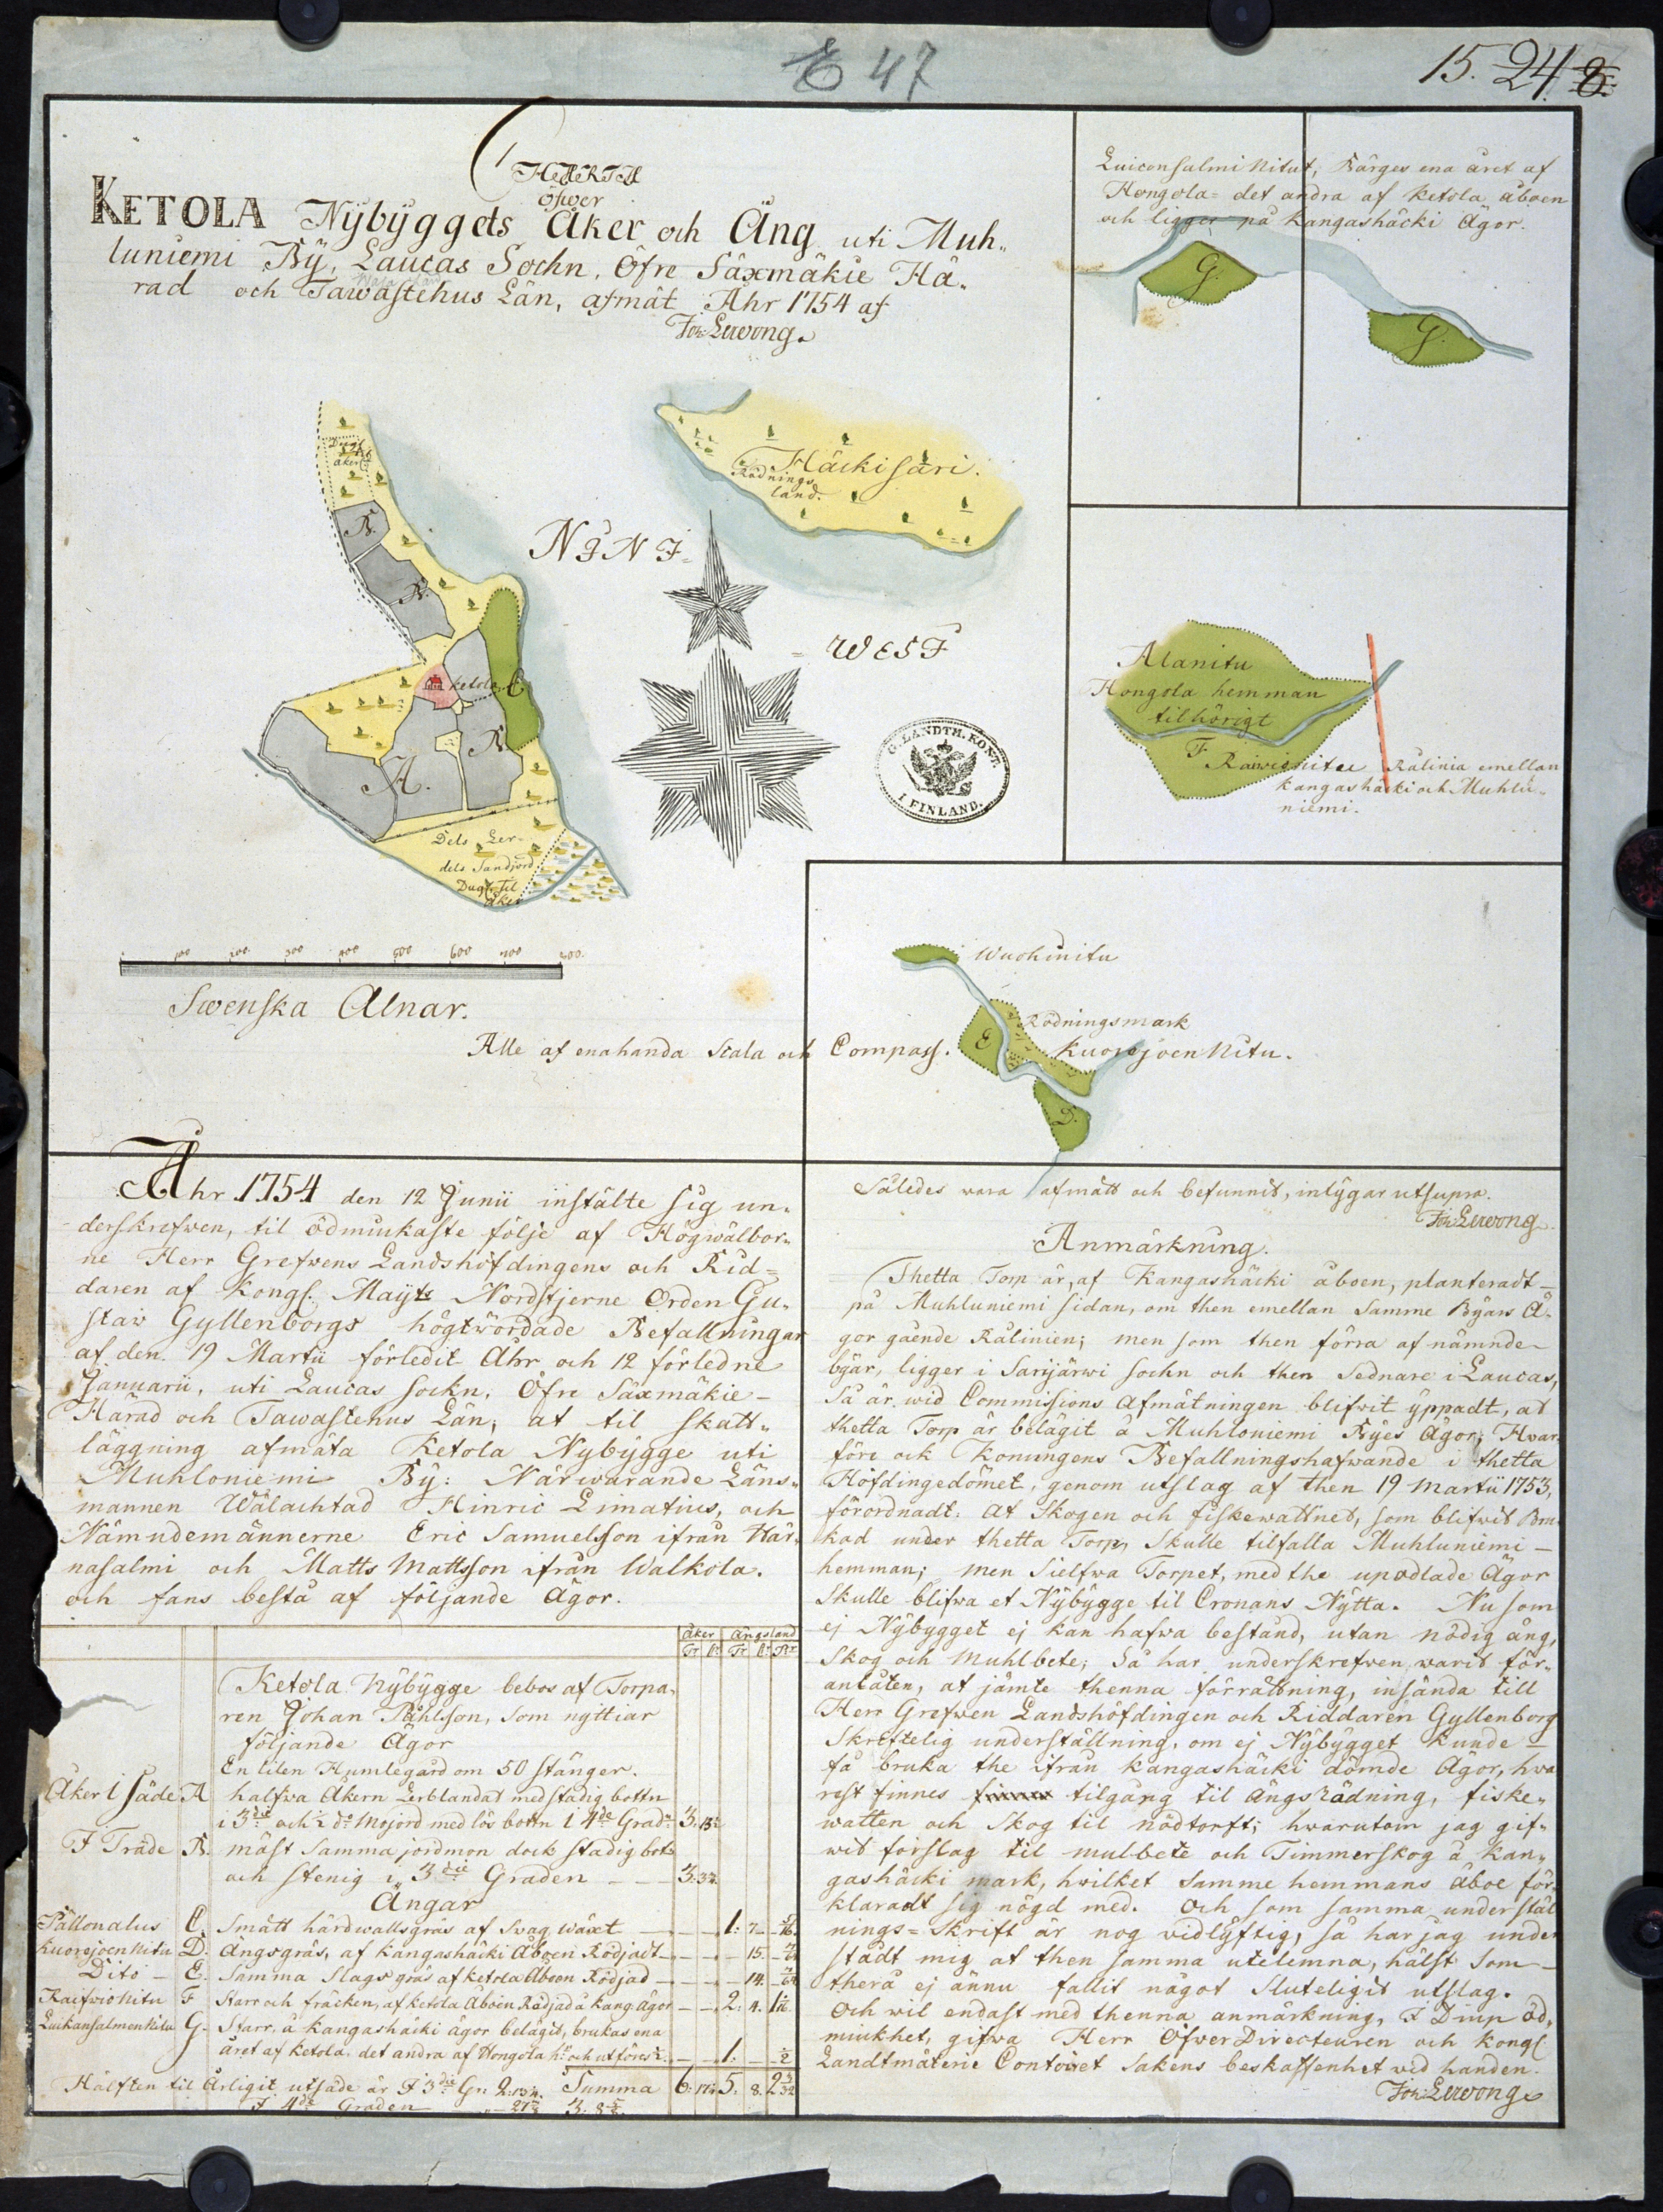 E 47
15. 24. 8.
KETOLA Nÿbÿggets Åker och Äng uti Muh„
öfwer
luniemi Bÿ, Laucas Sochn, Öfre Säxmäkie Hä„
rad och Tawastehus Län, afmät Åhr 1754 af
Joh: Lewong.
Luiconsalmi Nitut, Bärges ena året af
Hongola= det andra af Ketola åboen
och ligger på Kangashäcki Ägor.
G.
G.
Dugl.
til
åker
B.
B.
Ketola
C
B.
A.
Dels Ler-
dels Sandjord
Dugl. til
åker
Häckisari.
Rödnings
land.
WEST
G. LANDTM. KONT.
I FINLAND.
Alanitu
Hongola hemman
tilhörigt
F
Raiwionitu
Rålinia emellan
Kangashäcki och Muhlu„
niemi.
100 200 300 400 500 600 700 800.
Swenska Alnar.
Alle af enahanda Scala och Compass.
Wuohinitu
Rödningsmark
E
Kuorejoen Nitu.
D.
Åhr 1754 den 12 Junii instälte sig un„
derskrefwen, til ödmiukaste följe af Högwälbor„
ne Herr Grefwens Landshöfdingens och Rid=
daren af Kongl. Mayts Nordstjerne Orden Gu„
staw Gyllenborgs högtwördade Befallningar
af den 19 Martii förledit Åhr och 12 förledne
Januarii, uti Laucas sockn, Öfre Säxmäkie-
Härad och Tawastehus Län, at til skatt„
läggning afmäta Ketola Nybÿgge uti
Muhloniemi Bÿ: Närwarande Läns„
mannen Wälachtad Hinric Limatius, och
Nämndemännerne Eric Samuelsson ifrån Här„
nasalmi och Matts Mattsson ifrån Walkola.
och fans bestå af följande Ägor.
Åker Ängsland
Ketola Nÿbÿgge bebos af Torpa„
ren Johan Påhlsson, som nyttiar
följande Ägor
En liten Humlegård om 50 stänger.
Åker i Säde A halfwa Åkern Lerblandat med stadig bottn
i 3die och ½ do Mojord med lös bottn i 4de Graden 3: 13½
I Träde B. mäst samma jordmon dock stadig bott
och stenig i 3die Graden 3: 3¾
Ängar
Pällonalus C. Smått hårdwallsgräs af Swag wäxt 1: 7
Kuorejoen Nitu D. Ängsgräs, af Kangashäcki Åboen Rödjadt 15
Dito E. Samma Slags gräs af Ketola Åboen Rödjad 14
Raifwio Nitu F Starr och fräcken, af Ketola Åboen Rödjad å Kang. ägor 2: 4.
Luikonsalmen Nitu G. Starr, å Kangashäcki ägor belägit, brukas ena
året af Ketola, det andra af Hongola hn och utföres ½ 1: ½
Hälften til Årligit utsäde är I 3die Gr: Summa 6: 17¼ 5: 8.
I 4de Graden
Således wara afmätt och befunnit, intÿgar ut supra.
Joh: Lewong.
Anmärkning.
Thetta Torp är, af Kangashäcki åboen, planteradt
på Muhluniemi sidan, om then emellan samme Bÿars Ä„
gor gående Rålinien; men som then förra af nämnde
bÿar, ligger i Sarijärwi sochn och then sednare i Laucas,
Så är wid Commissions Afmätningen blifwit ÿppadt, at
thetta Torp är belägit å Muhloniemi Bÿes Ägor; Hwar„
före ock Konungens Befallningshafwande i thetta
Höfdingedömet, genom utslag af then 19 Martii 1753,
förordnadt: At Skogen och fiskewattnet, som blifwit Bru„
kad under thetta Torp, Skulle tilfalla Muhluniemi
hemman; men Sielfwa Torpet, med the upodlade Ägor
Skulle blifwa et Nÿbÿgge til Cronans Nÿtta. Nu som
ej Nÿbygget ej kan hafwa bestånd, utan nödig äng,
Skog och Muhlbete; Så har underskrefwen warit för„
anlåten, at jämte thenna förrättning, insända till
Herr Grefwen Landshöfdingen och Riddaren Gyllenborg
Skriftelig underställning, om ej Nÿbÿgget kunde
få bruka the ifrån Kangashäcki dömde Ägor, hwa
rest finnes tilgång til ängsrödning, fiske„
watten och Skog til nödtorft; hwarutom jag gif„
wit förslag til mulbete och Timmerskog å Kan„
gashäcki mark, hwilket samme hemmans åboe för„
klaradt sig nögd med. Och som samma underställ
nings=skrift är nog widlÿftig, så har jag under
städt mig at then samma utelemna, hälst som
therå ej ännu fallit något Sluteligit utslag.
Och wil endast med thenna anmärkning, I Diup öd„
miukhet, gifwa Herr Öfwer Directeuren och Kongl
Landtmäterie Contoiret Sakens beskaffenhet wid handen.
Joh: Lewong